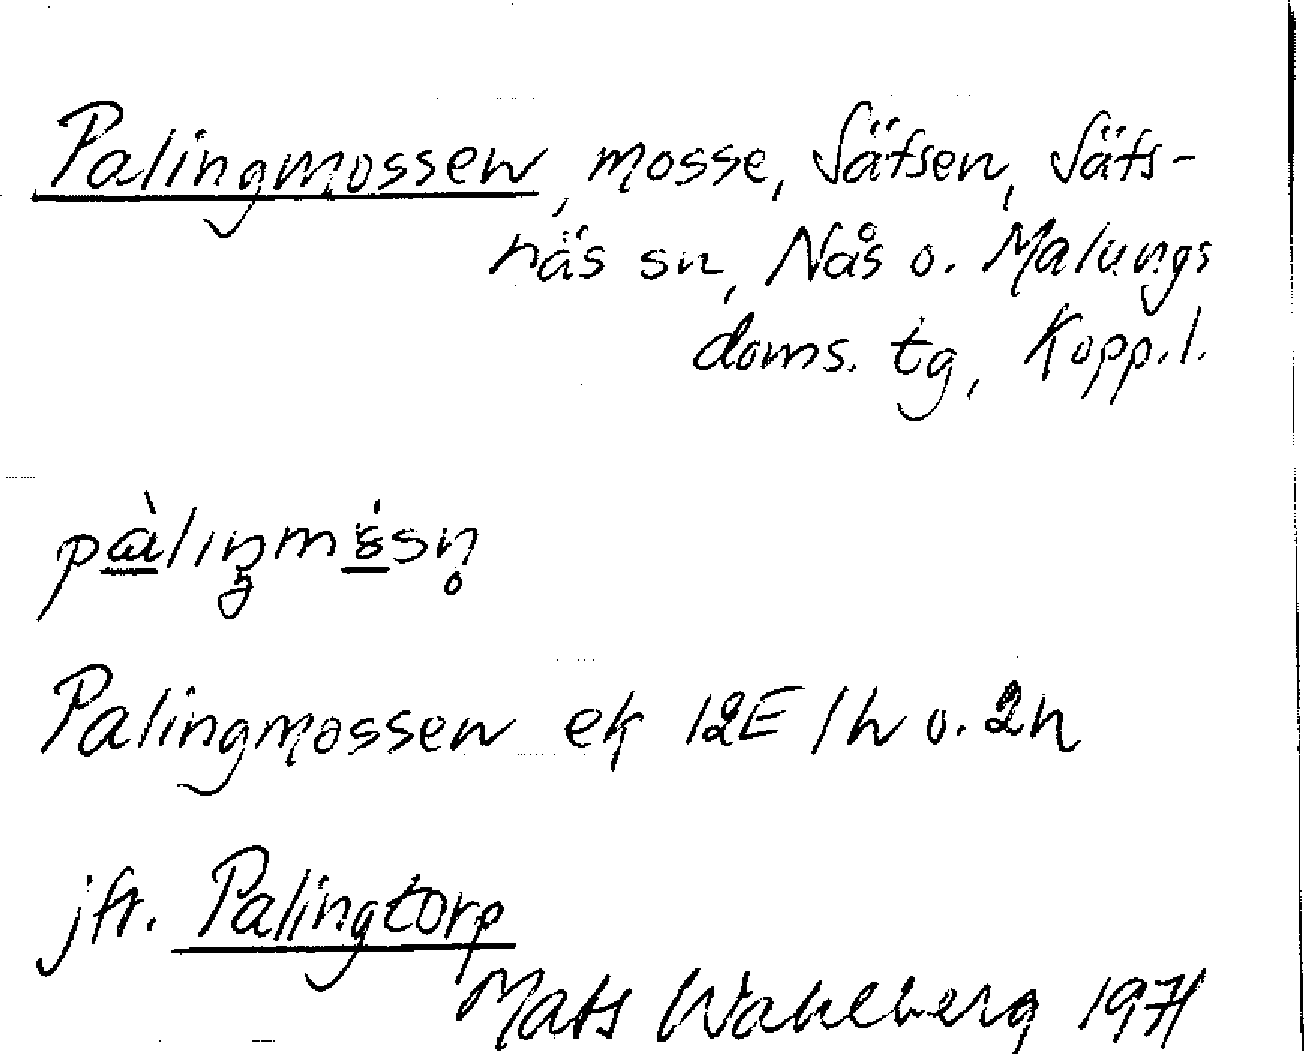 Palingmossen, mosse, Sätsen, Säfs-
näs sn, Nås o. Malungs
doms. tg, Kopp.l.
Palingmossen ek 12E 1h o. 2h
jfr. Palingtorp
Mats Wahlberg 1971